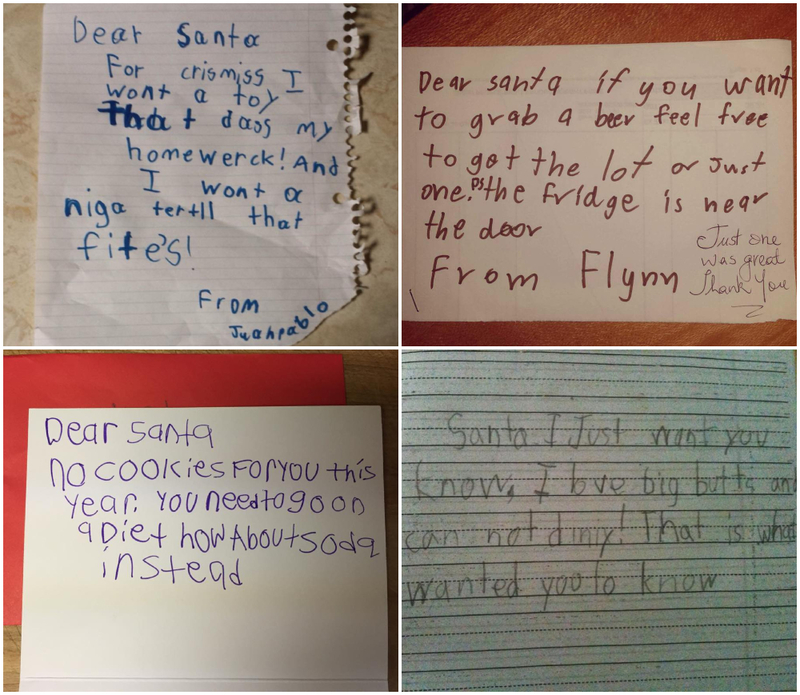 Dear Santa
For crismiss I
wont a toy
That dass my
homewerck! And
I wont a
niga tertll that
fite's!
From
Juahpablo
Dear santa if you want
to grab a beer feel free
to got the lot or Just
one. Ps the fridge is near
the door
From Flynn
Just one
was great
Thank You
Dear santa
no cookies For you this
year. you need to go on
a Diet how About soda
instead
Santa I Just want you
know, I love big butts and
can not diniy! That is what
wanted yoo to know